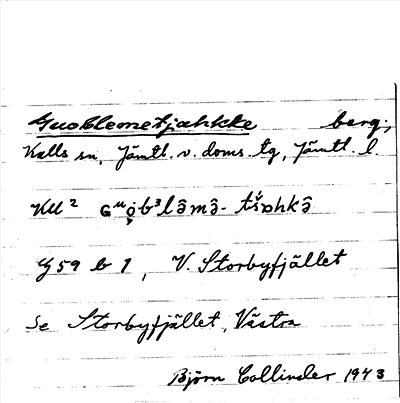 Guoblemetjahkke berg,
Kalls sn, Jämtl. v. doms. tg, Jämtl. l.
KU² ɢᵘo̭b³lə̂mə̂- tš́ɒhkə̂
G 59 b 1, V. Storbyfjället
Se Storbyfjället, Västra
Björn Collinder 1943